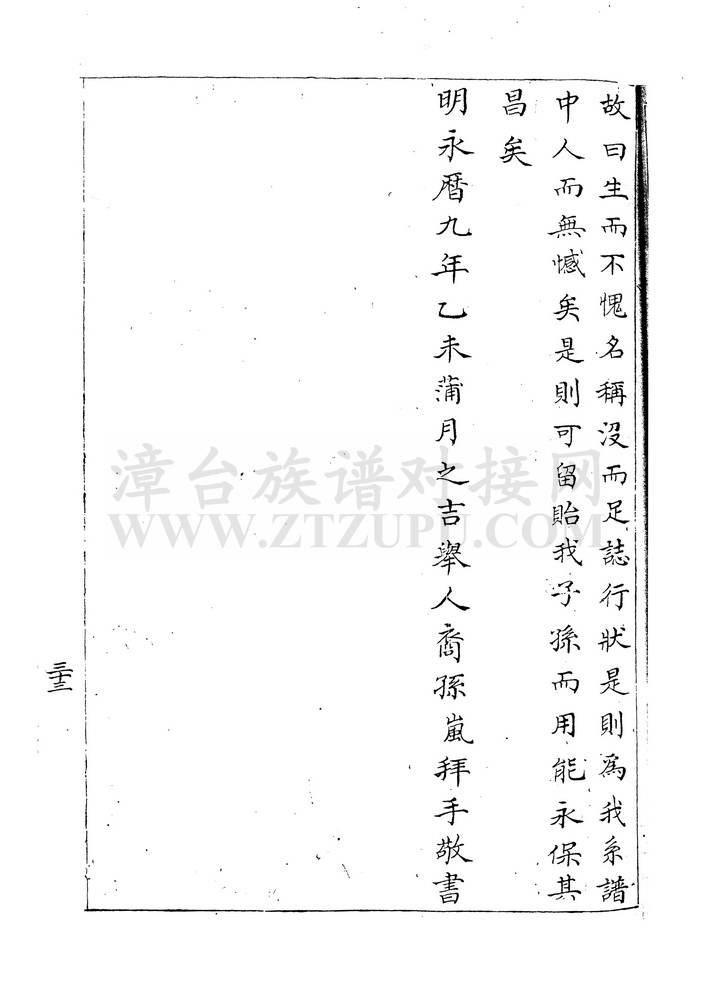 故曰生而不愧名稱沒而足誌行狀是則為我系譜
中人而無憾矣是則可留貽我子孫而用能永保其
昌矣
明永曆九年乙未蒲月之吉舉人裔孫嵐拜手敬書
三十三
漳台族谱对接网
WWW.ZTZUPU.COM